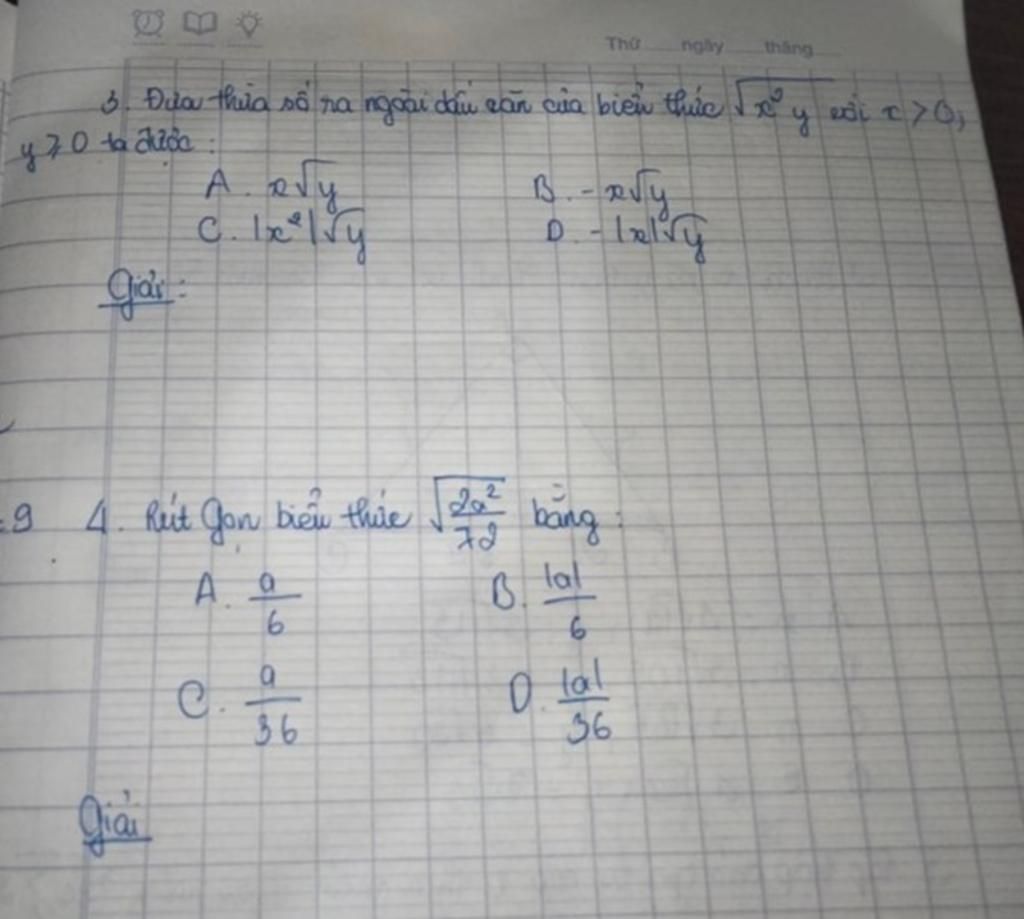 Thứ ngày tháng
3. Đưa thừa số ra ngoài dấu căn của biểu thức √x²y với x > 0,
y ⩾ 0 ta được :
A. x√y B. -x√y
C. |x²|√y D. -|x|√y
Giải :
9 4. Rút gọn biểu thức √(2a²/72) bằng :
A. a/6 B. |a|/6
C. a/36 D. |a|/36
Giải